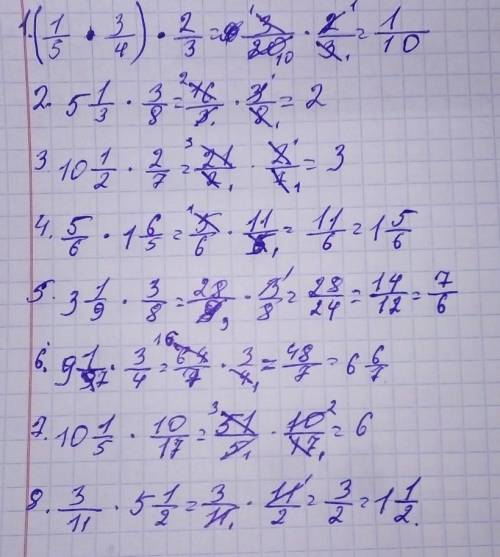 1. (1/5 · 3/4) · 2/3 = 3/20 10 · 2 1/3 1 = 1/10
2. 5 1/3 · 3/8 = 2 16/3 1 · 3 1/8 1 = 2
3. 10 1/2 · 2/7 = 3 21/2 1 · 2 1/7 1 = 3
4. 5/6 · 1 6/5 = 1 5/6 · 11/5 1 = 11/6 = 1 5/6
5. 3 1/9 · 3/8 = 28/9 3 · 3 1/8 = 28/24 = 14/12 = 7/6
6. 9 1/7 · 3/4 = 16 64/7 · 3/4 1 = 48/7 = 6 6/7
7. 10 1/5 · 10/17 = 3 51/5 1 · 10 2/17 1 = 6
8. 3/11 · 5 1/2 = 3/11 1 · 11 1/2 = 3/2 = 1 1/2.